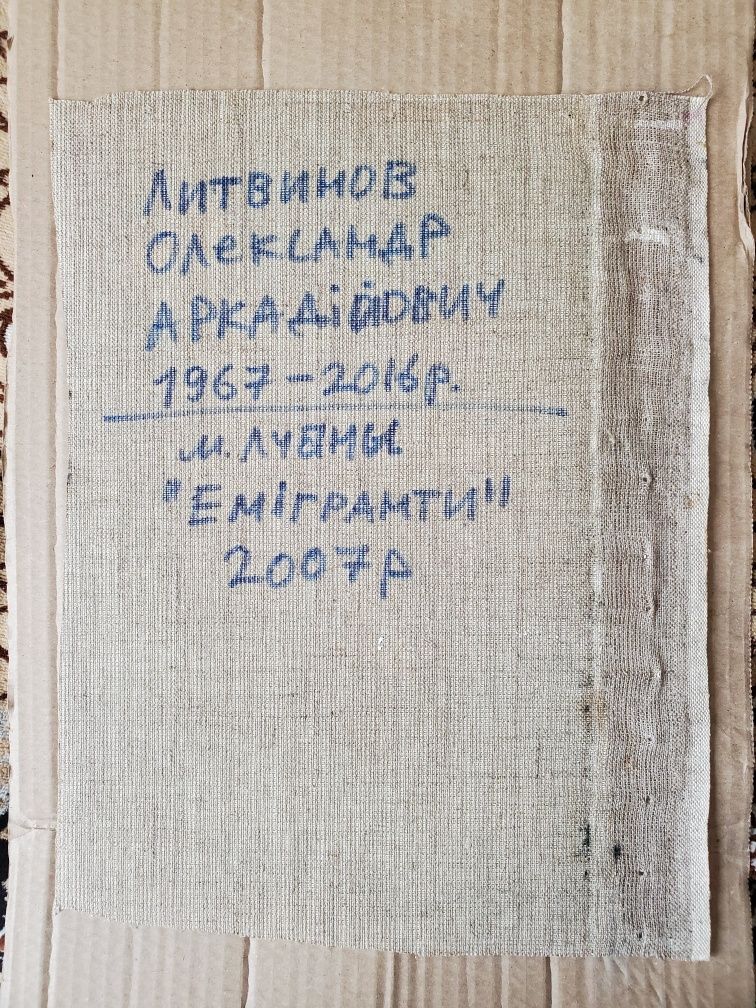 ЛИТВИНОВ
ОЛЕКСАНДР
АРКАДІЙОВИЧ
1967-2016р.
м.
"ЕМІГРАНТИ"
2007р